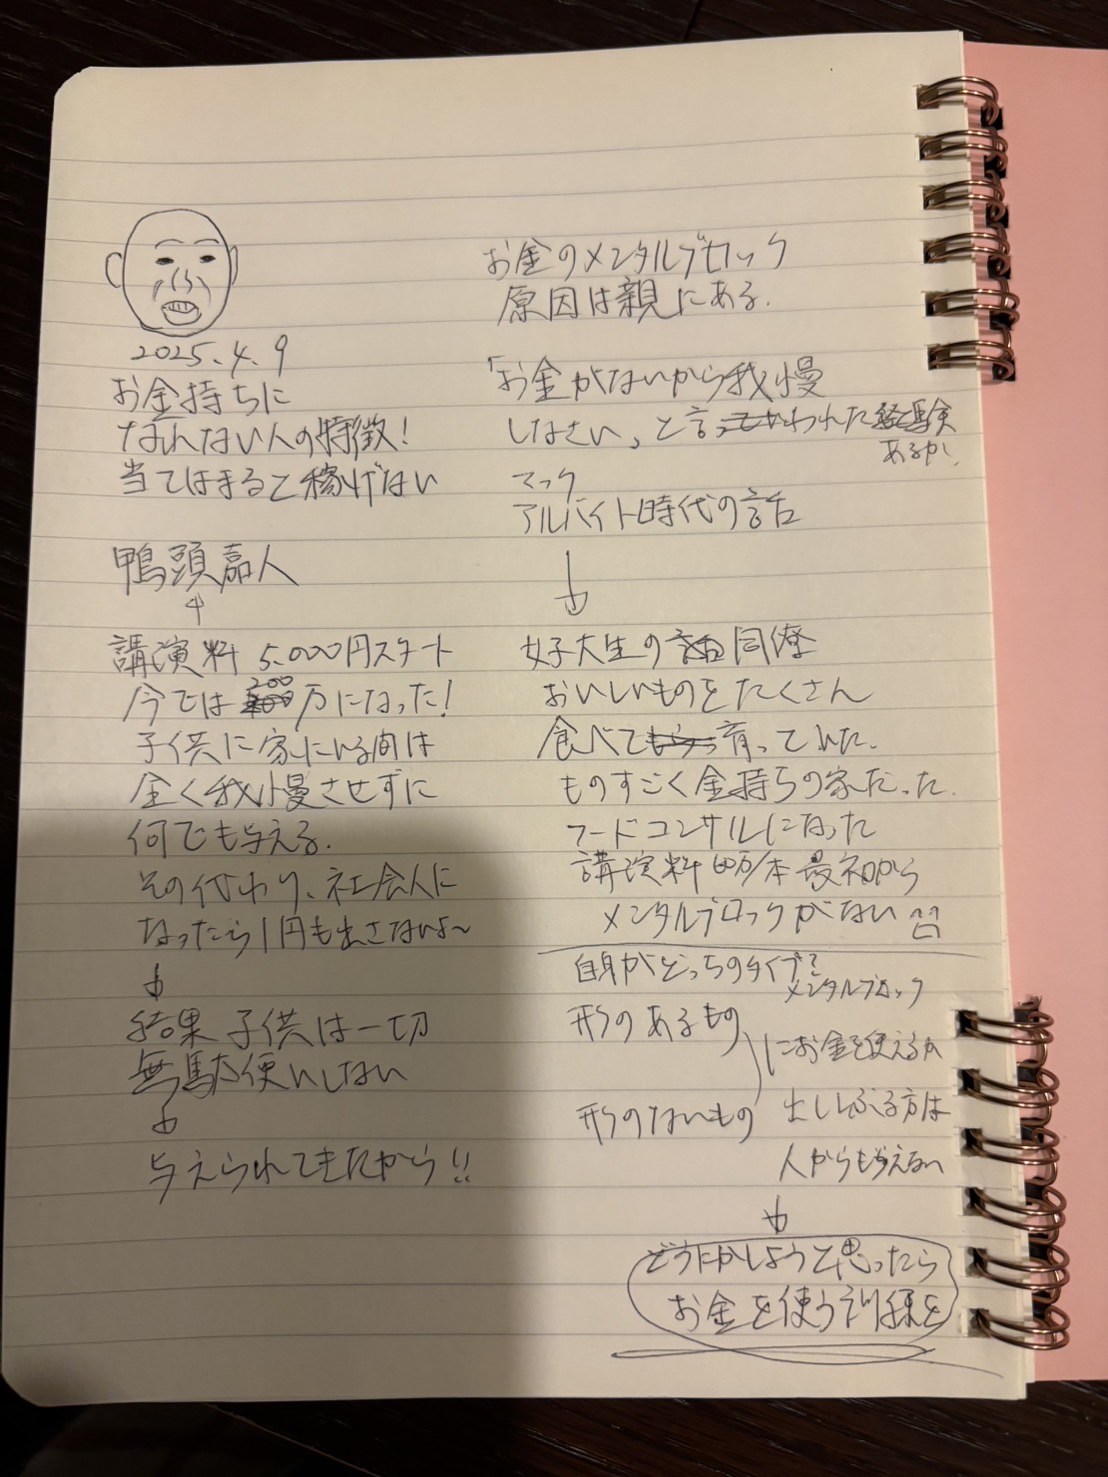 2025.4.9
お金持ちに
なれない人の特徴!
当てはまると稼げない
鴨頭嘉人
講演料 5.000円スタート
今では200万になった!
子供に家にいる間は
全く我慢させずに
何でも与える.
その代わり、社会人に
なったら1円も出さないよ〜
結果 子供は一切
無駄使いしない
与えられてきたから!!
お金のメンタルブロック
原因は親にある.
「お金がないから我慢
しなさい」と言われた経験
あるか.
マック
アルバイト時代の話
女子大生の同僚
おいしいものをたくさん
食べて育ってれた.
ものすごく金持ちの家だった.
フードコンサルになった
講演料 /本 最初から
メンタルブロックがない
自身がどっちのタイプ?
メンタルブロック
形のあるもの
にお金を使えるか
形のないもの
出ししぶる方は
人からもらえない
どうにかしようと思ったら
お金を使う訓練を